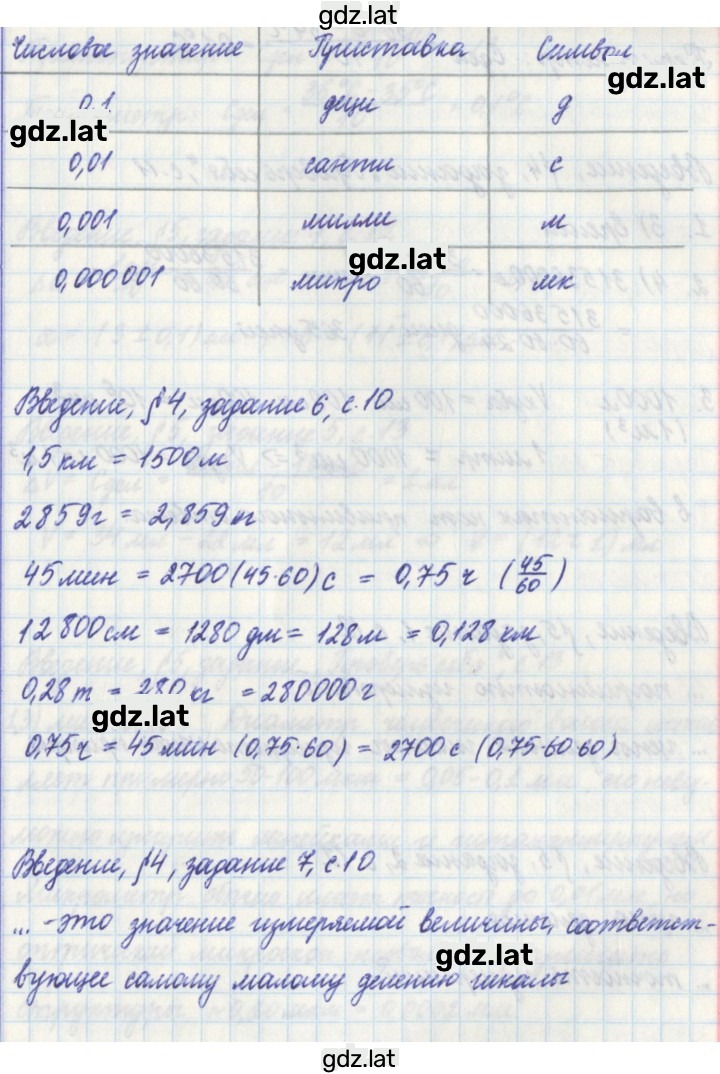 gdz.lat
Числовое значение Приставка Символ
gdz.lat
0,1 деци д
gdz.lat
0,01 санти с
0,001 милли м
gdz.lat
0,000001 микро мк
Введение, §4, задание 6, с.10
1,5 км = 1500 м
2859 г = 2,859 кг
45 мин = 2700 (45·60) с = 0,75 ч (45/60)
12800 см = 1280 дм = 128 м = 0,128 км
0,28 т = 280 кг = 280000 г
gdz.lat
0,75 ч = 45 мин (0,75·60) = 2700 с (0,75·60·60)
Введение, §4, задание 7, с.10
... - это значение измеряемой величины, соответст-
gdz.lat
вующее самому малому делению шкалы
gdz.lat